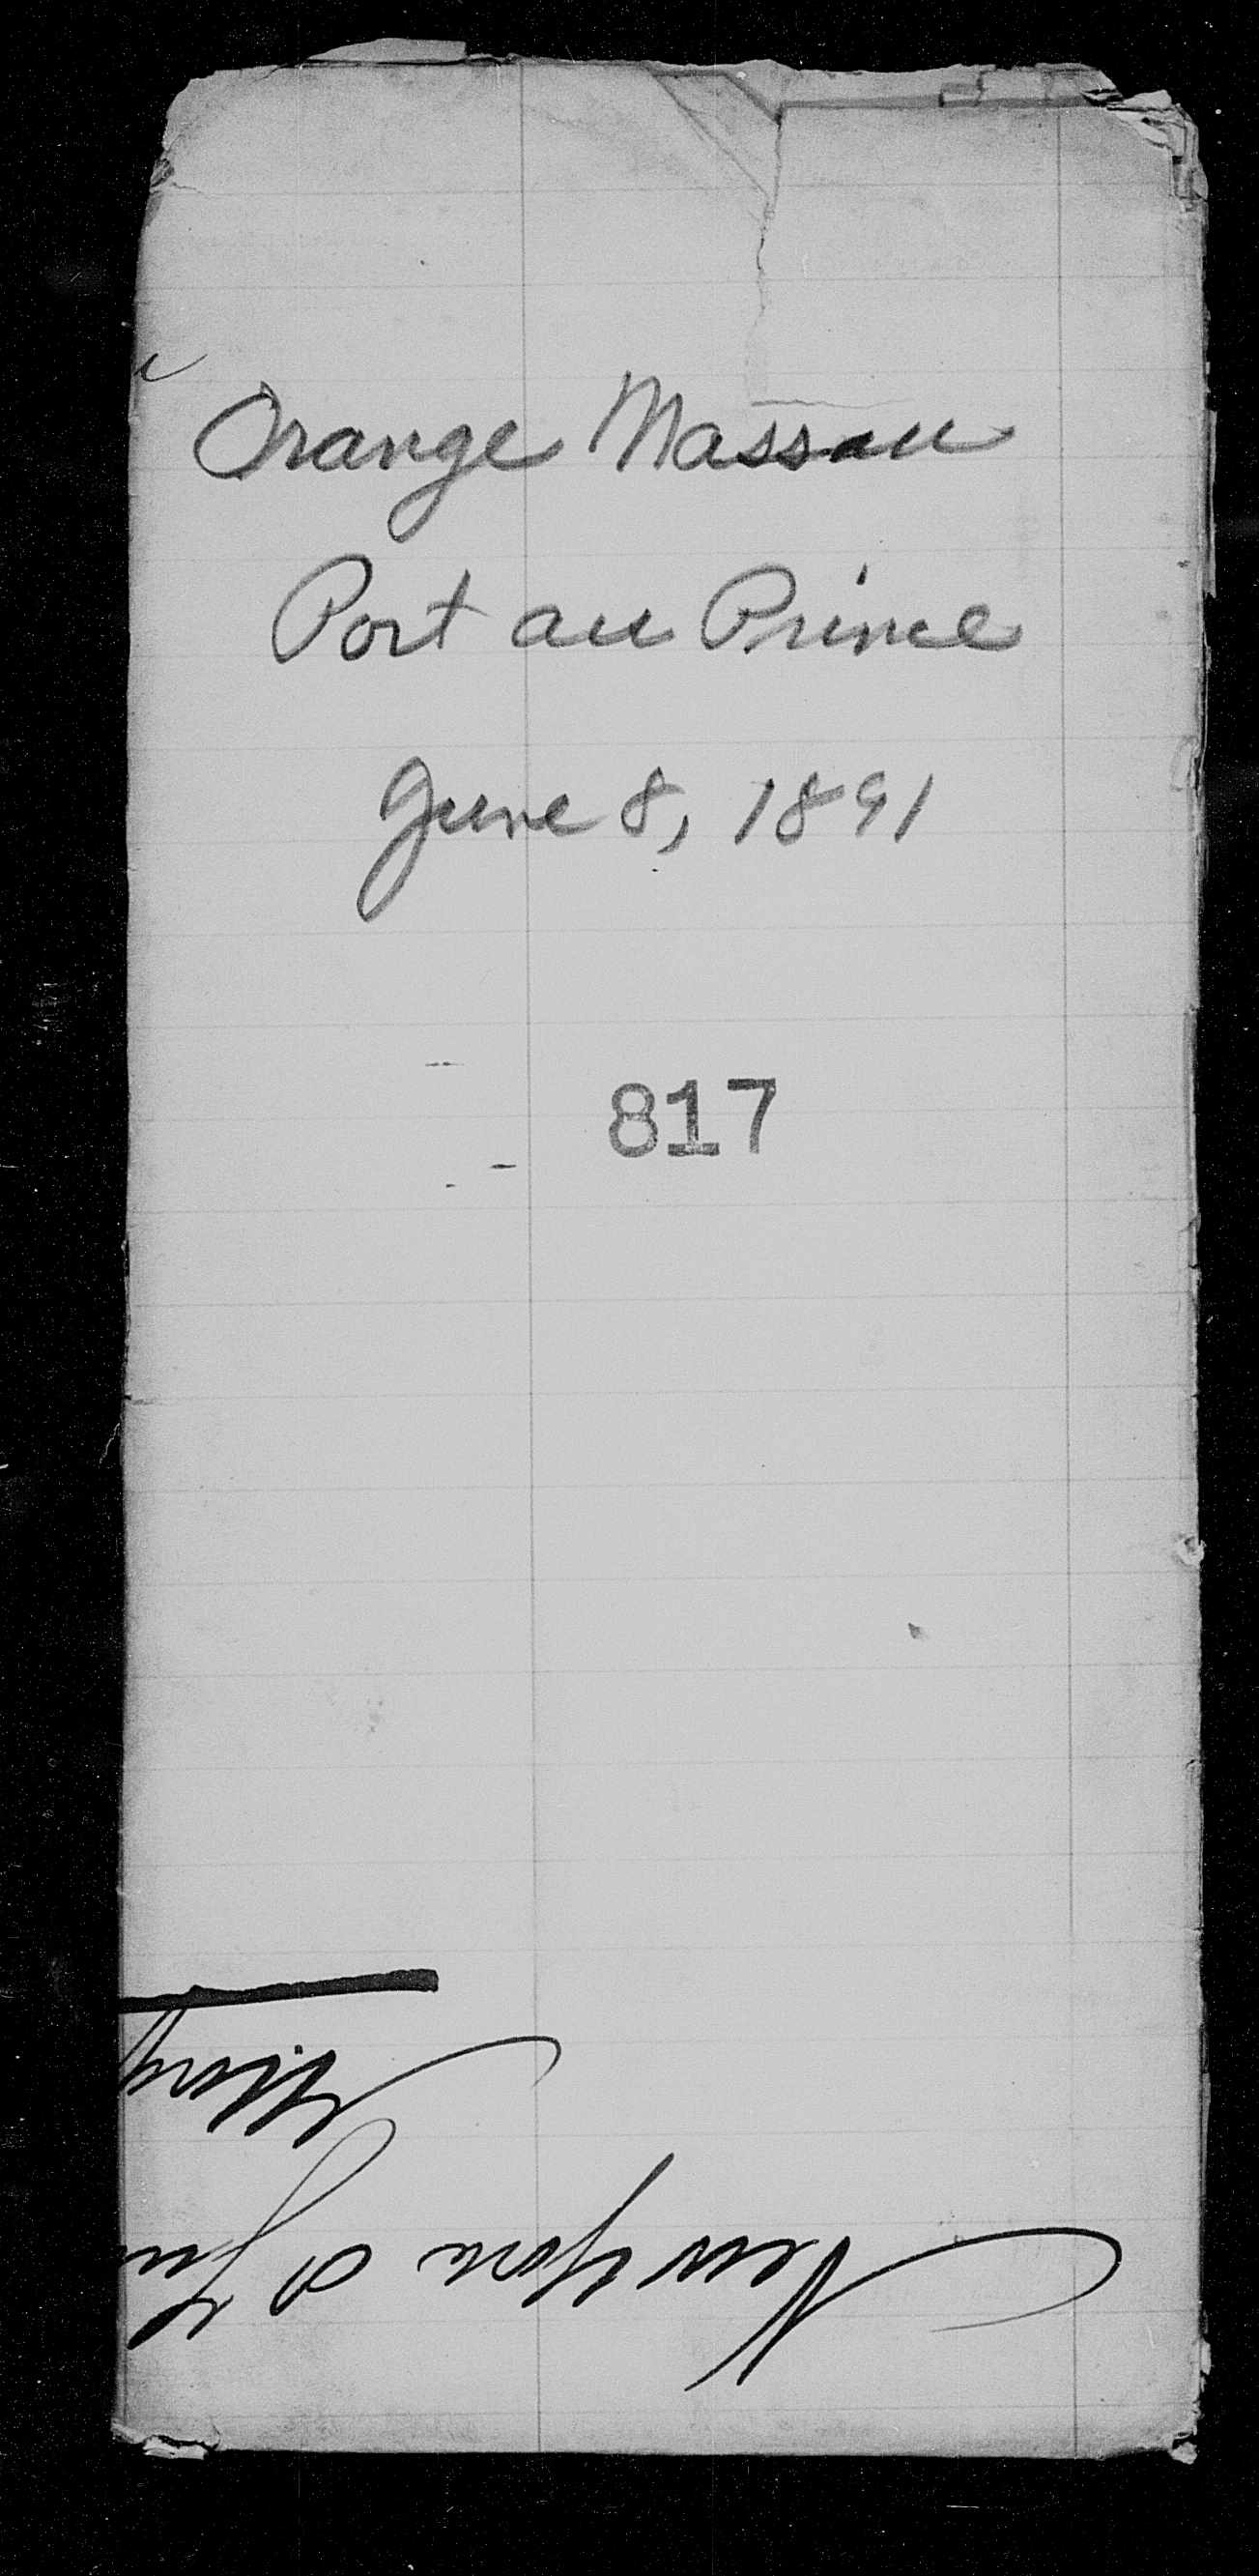 Orange Nassau
Port au Prince
June 8, 1891
817
New York